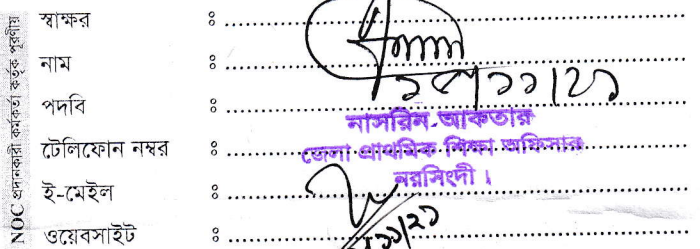 NOC প্রদানকারী কর্মকর্তা কর্তৃক পূরণীয়
স্বাক্ষর :
নাম :
পদবি :
টেলিফোন নম্বর :
ই-মেইল :
ওয়েবসাইট :
নাসরিন আকতার
জেলা প্রাথমিক শিক্ষা অফিসার
নরসিংদী।